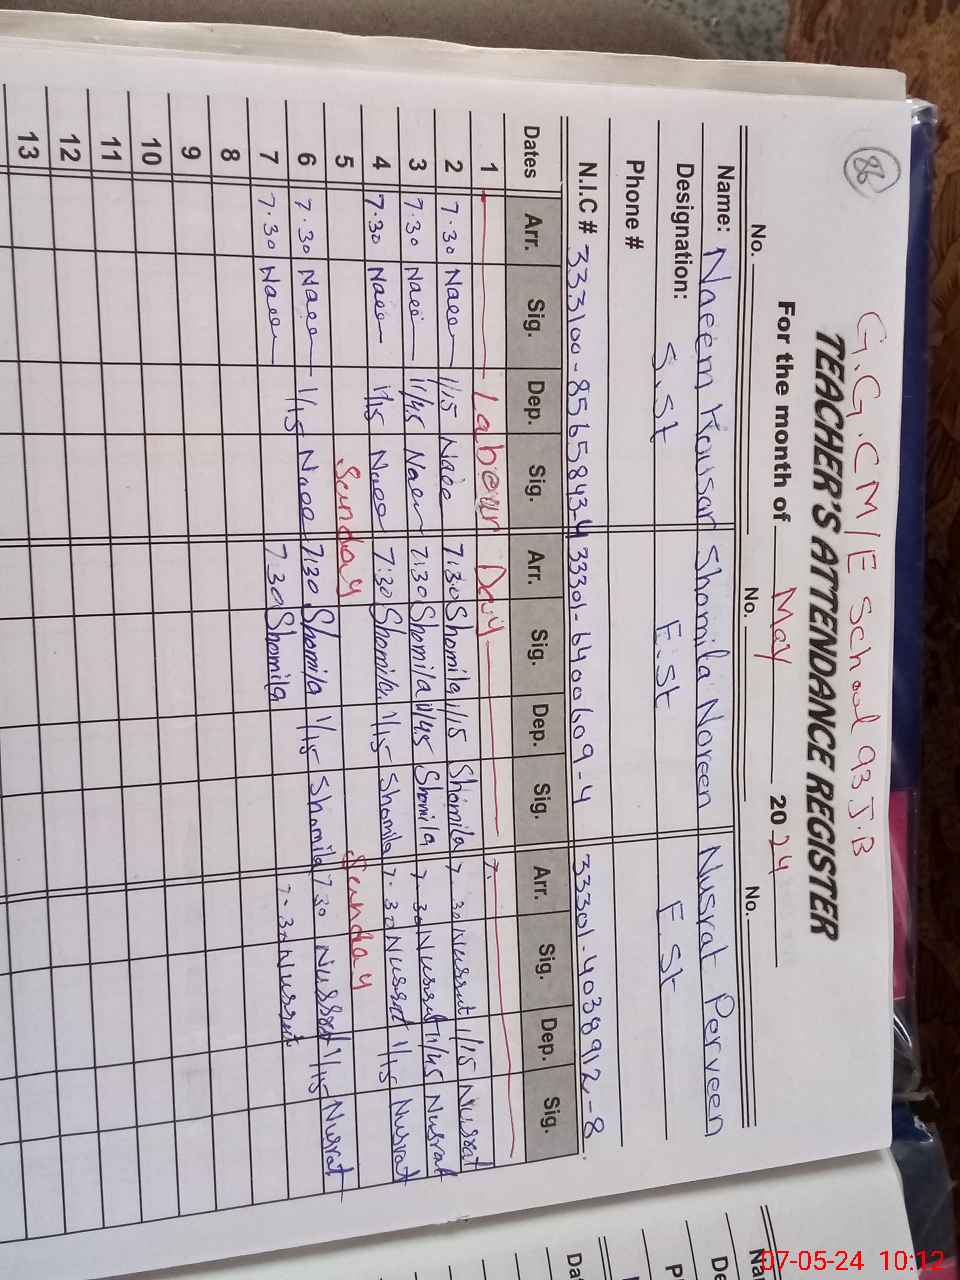 86
G.G.CM/E School 93 J.B
TEACHER'S ATTENDANCE REGISTER
For the month of May 2024
No. No. No.
Name: Naeem Kousar Shamila Noreen Nusrat Perveen
Designation: S.St E.St E St
Phone #
N.I.C # 333100-8565843-4 33301-6400609-4 33301-4038912-8
Dates Arr. Sig. Dep. Sig. Arr. Sig. Dep. Sig. Arr. Sig. Dep. Sig.
1 Labour Day 7.
2 7.30 Naee 1/15 Naee 7:30 Shamila 1/15 Shamila 7.30 Nusrat 1/15 Nusrat
3 7.30 Naee 11/45 Naee 7:30 Shamila 11/45 Shamila 7.30 Nusrat 11/45 Nusrat
4 7.30 Naee 1/15 Naee 7:30 Shamila 1/15 Shamila 7.30 Nusrat 1/15 Nusrat
5 Sunday Sunday
6 7.30 Naee 1/15 Naee 7:30 Shamila 1/15 Shamila 7.30 Nusrat 1/15 Nusrat
7 7.30 Naee 7.30 Shamila 7.30 Nusrat
8
9
10
11
12
13
07-05-24 10:12